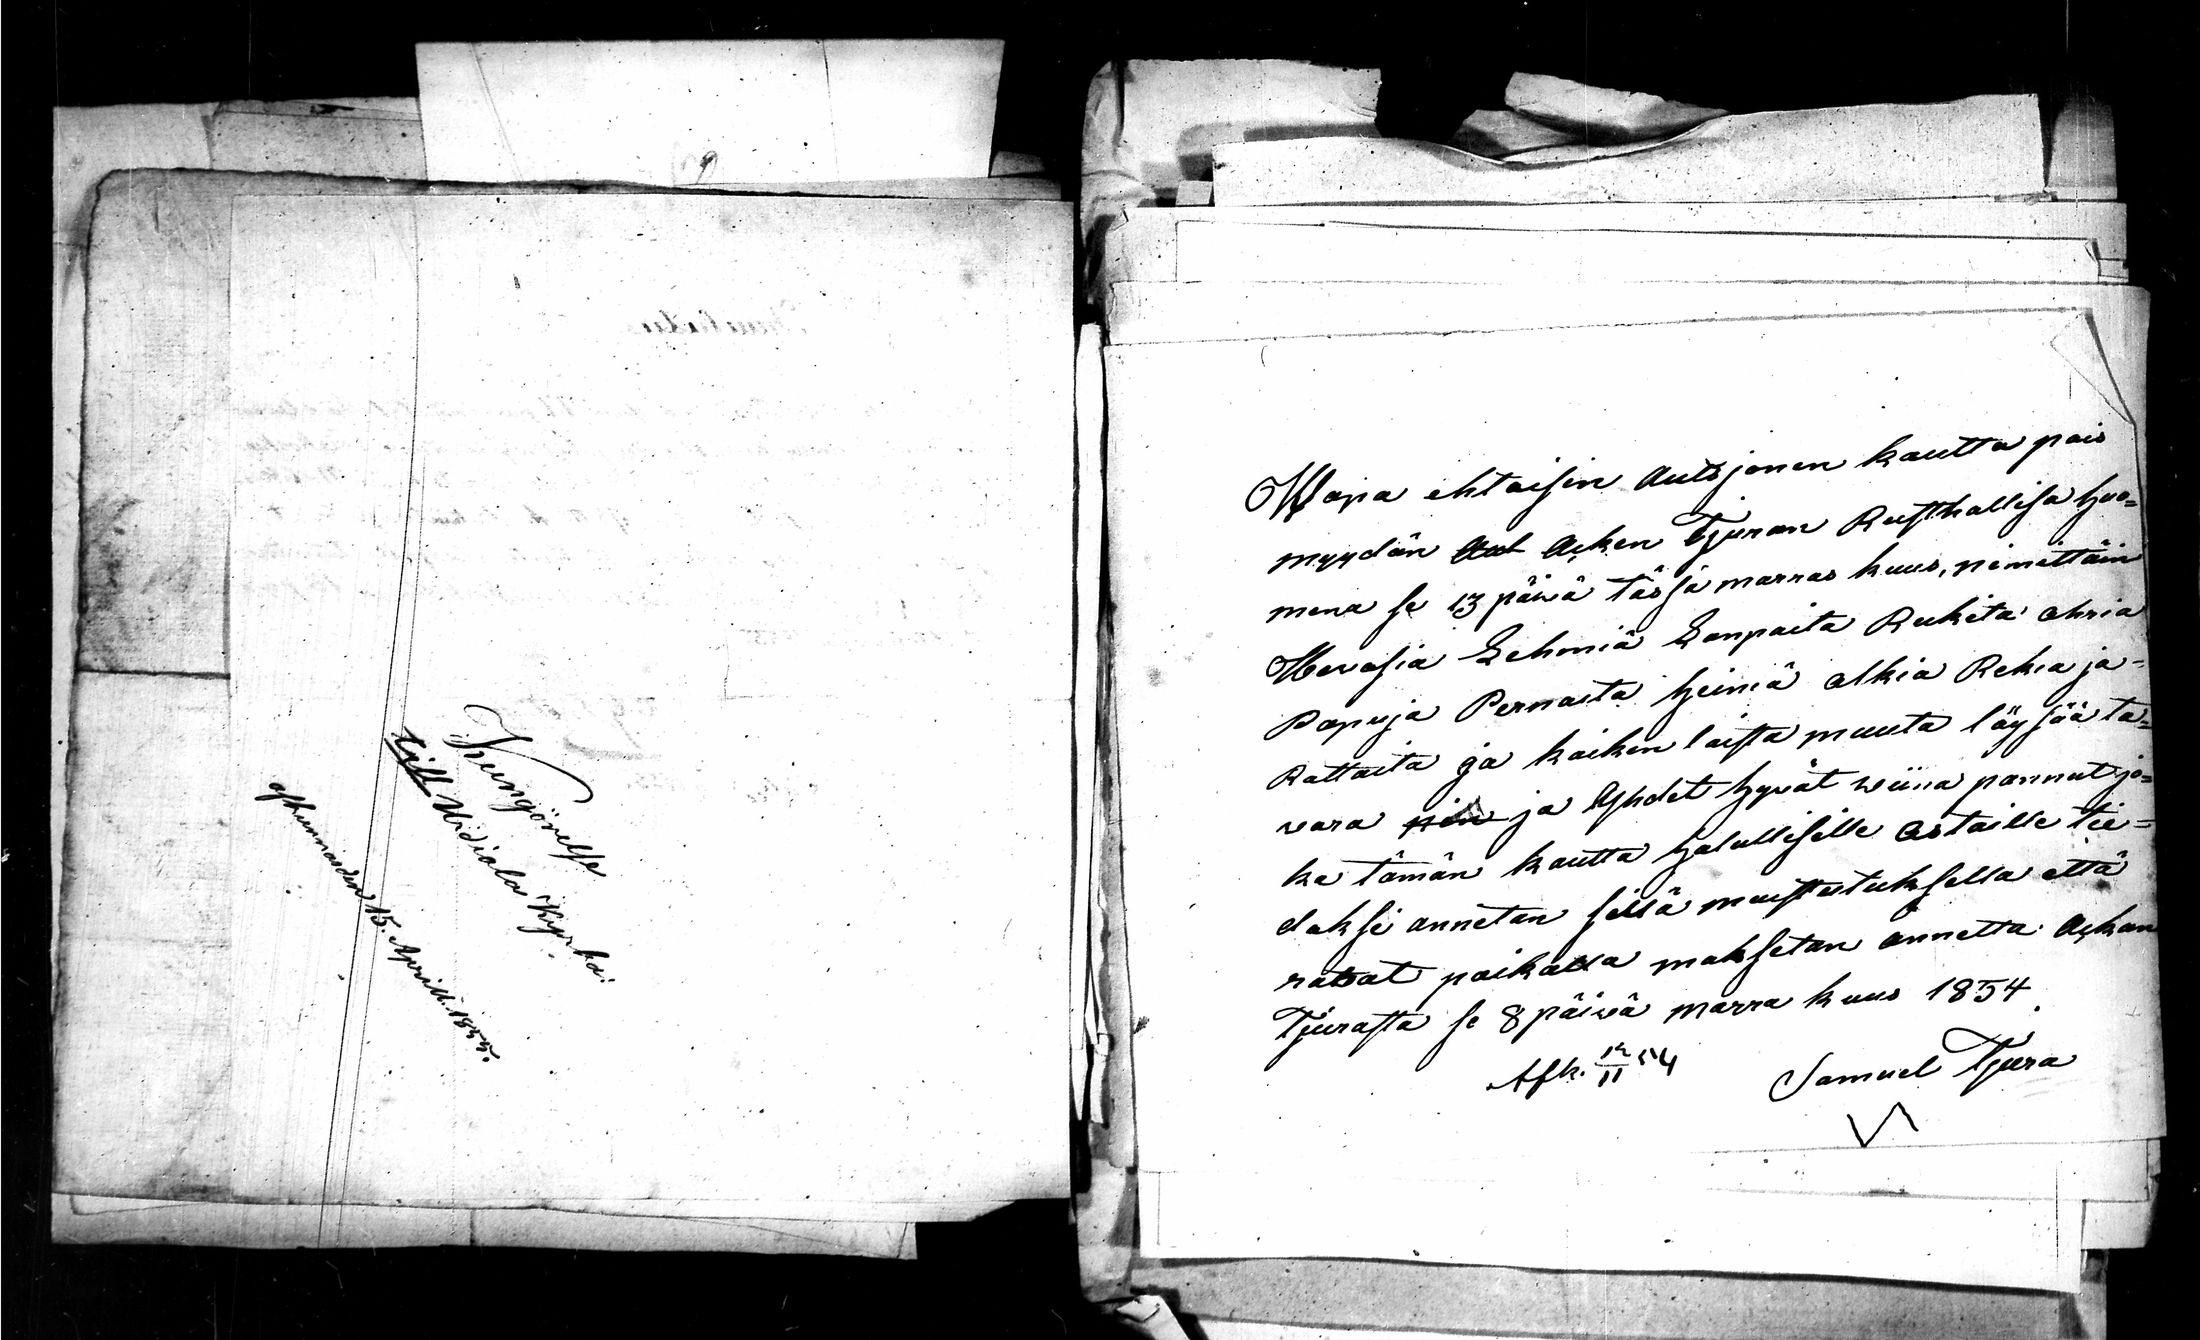 Kungörelse
till Uskela Kyrka.
afkunnaden 15. Aprill. 1855.
Wapa ehtoisen Autsjonen kautta pois
myydän Aut Asken Tjuran Rusthallisa huo=
mena se 13 päivä täsSä marras kuus, nimittäin
Hevosia Lehmiä Lanpaita Rukeita ohria
Papuja Pernoita heiniä olkia Rekia ja=
Rattaita ja kaiken laista muuta läysää ta=
vara nin ja Yhdet hyvät wiina pannut jo=
ka tämän kautta halullisille ostaille tie=
doksi annetan sillä muistutuksella että
rahat paikalla maksetan annettu Askan
Tjurasta se 8 päivä marra kuus 1854
Afk. 12/11 54
Samuel Tjura